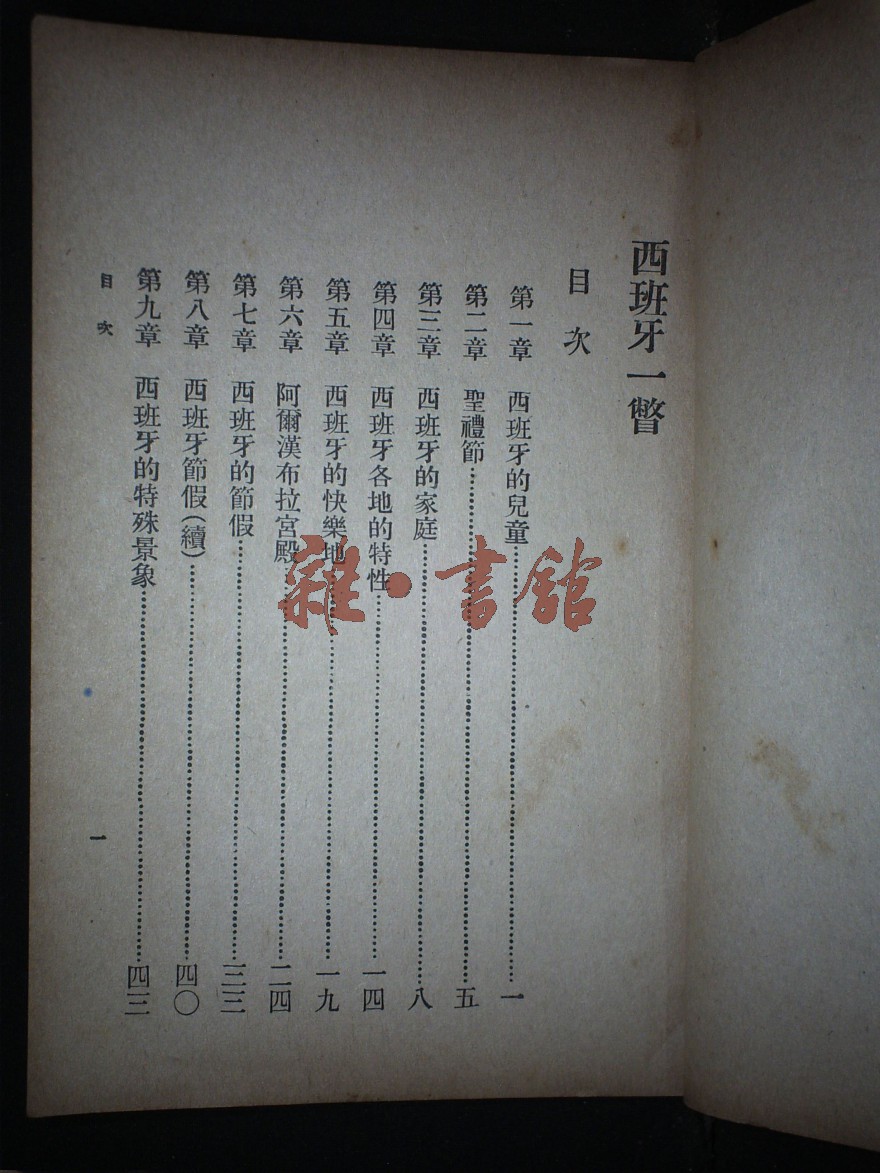 西班牙一瞥
目次
第一章 西班牙的兒童……一
第二章 聖禮節……五
第三章 西班牙的家庭……八
第四章 西班牙各地的特性……一四
第五章 西班牙的快樂地……一九
第六章 阿爾漢布拉宮殿……二四
第七章 西班牙的節假……三三
第八章 西班牙節假(續)……四〇
第九章 西班牙的特殊景象……四三
目次
一
雜·書館